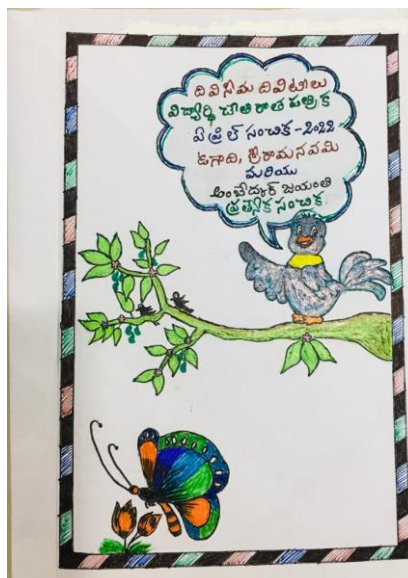 దివిసీమ దివిటీలు
విద్యార్థి చేతి రాత పత్రిక
ఏప్రిల్ సంచిక-2022
ఉగాది, శ్రీరామనవమి
మరియు
అంబేద్కర్ జయంతి
ప్రత్యేక సంచిక